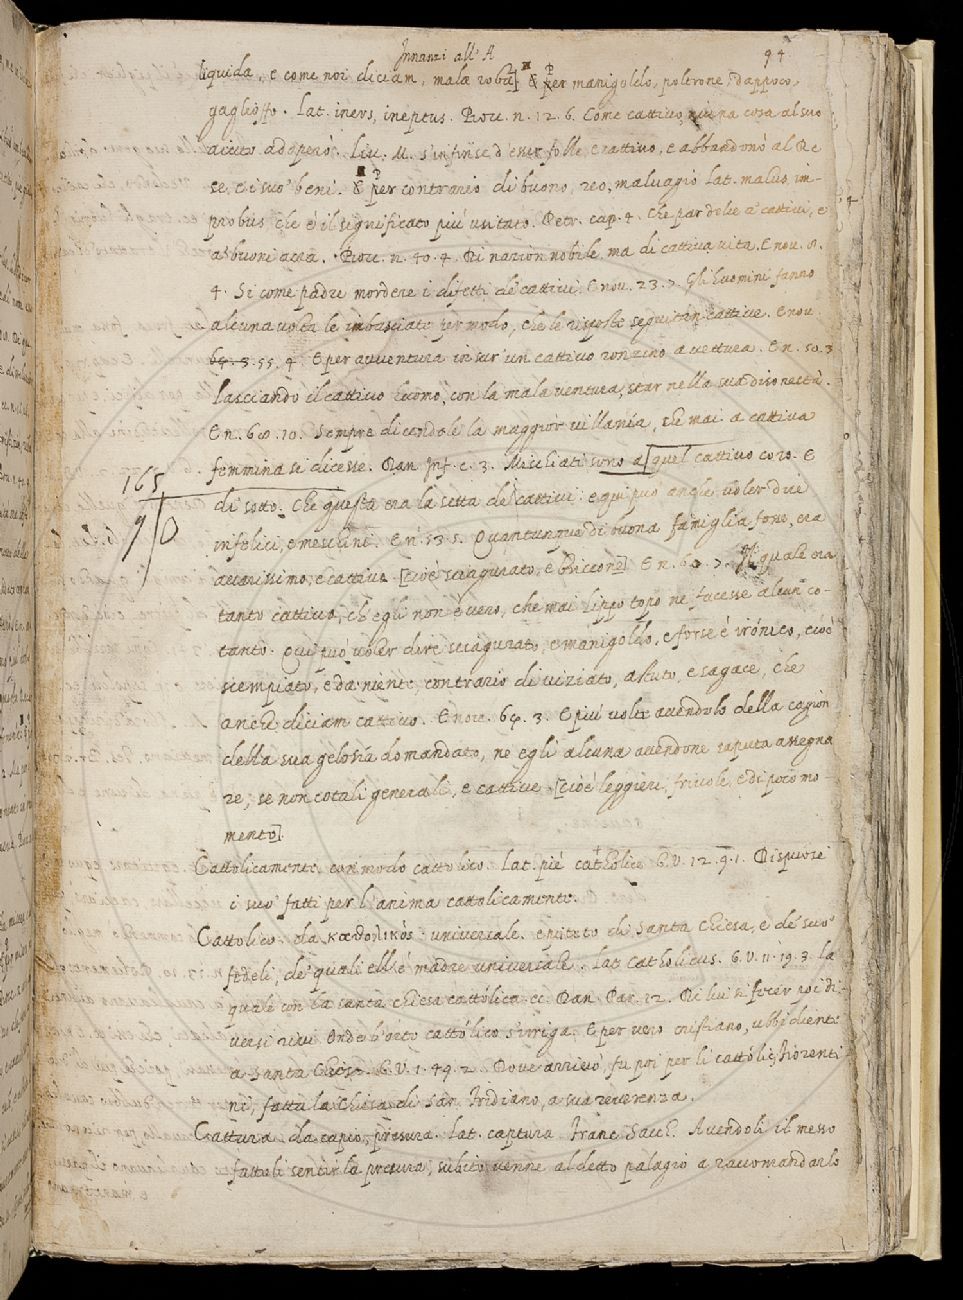 Innanzi all' A
94
liquida, e come noi diciam, mala roba] & per manigoldo, poltrone, dappoco,
gaglioffo. Lat. iners, ineptus. Bocc. n. 12. 6. Come cattivo, niuna cosa al suo
aiuto adoperò. Liv. M. s'infinse d'esser folle, e cattivo, e abbandonò al Re
se, e i suo' beni. & per contrario di buono, reo, malvagio Lat. malus, im-
probus che è il significato più usitato. Petr. cap. 4. Che par dolce a' cattivi, e
a' buoni acra. Bocc. n. 40. 4. Di nazion nobile ma di cattiva vita. E nov. 8.
4. Si come padre mordere i difetti de' cattivi. E nov. 23. 7. Gli huomini fanno
alcuna volta le imbasciate per modo, che le risposte seguitan cattive. E nov.
64. 3. 55. 4. E per avventura in sur un cattivo ronzino a vettura. E n. 50. 3
Lasciando il cattivo huomo, con la mala ventura, star nella sua disonestà.
E n. 68. 10. Sempre dicendole la maggior villania, che mai a cattiva
femmina si dicesse. Dan. Inf. c. 3. Mischiati sono a quel cattivo coro. E
165
9 D
di sotto. Che questa era la setta de' cattivi: e qui può anche voler dire
infelici, e meschini. E n. 53. 5. Quantunque di buona famiglia fosse, era
avarissimo, e cattivo. [cioè sciagurato, e briccone] E n. 7. Il quale era
tanto cattivo, ch' egli non è vero, che mai lippo topo ne facesse alcun co-
tanto. Qui può voler dire sciagurato, e manigoldo, e forse è irónico, cioè
scempiato, e da niente, contrario di viziato, astuto, e sagace, che
anche diciam cattivo. E nov. 64. 3. E più volte avendolo della cagion
della sua gelosia domandato, ne egli alcuna avendone saputa assegna
re, se non cotali generali, e cattive [cioè leggieri, frivole, e di poco mo-
mento].
Cattolicamente. con modo cattolico. Lat. piè catholice G. V. 12. 9. 1. Dispuose
i suo' fatti per l'anima cattolicamente.
Cattolico. da καθολικός: universale. epiteto di Santa Chiesa, e de' suo'
fedeli, de' quali ell' è madre universale. Lat. catholicus. G. V. 11. 19. 3. la
quale con la santa chiesa cattólica ec. Dan. Par. 12. Di lui si fecer poi di-
versi rivi Onde l'orto cattólico s'irriga. E per vero cristiano, ubbidiente
a Santa Chiesa. G. V. 1. 49. 2. Dove arrivò, fu poi per li cattólici fiorenti
ni, fatta la Chiesa di San Fridiano, a sua reverenza.
Cattura da capio, presura. Lat. captura Franc. Sacch. Avendoli il messo
fattoli sentir la presura, subito venne al detto palagio a raccomandarlo